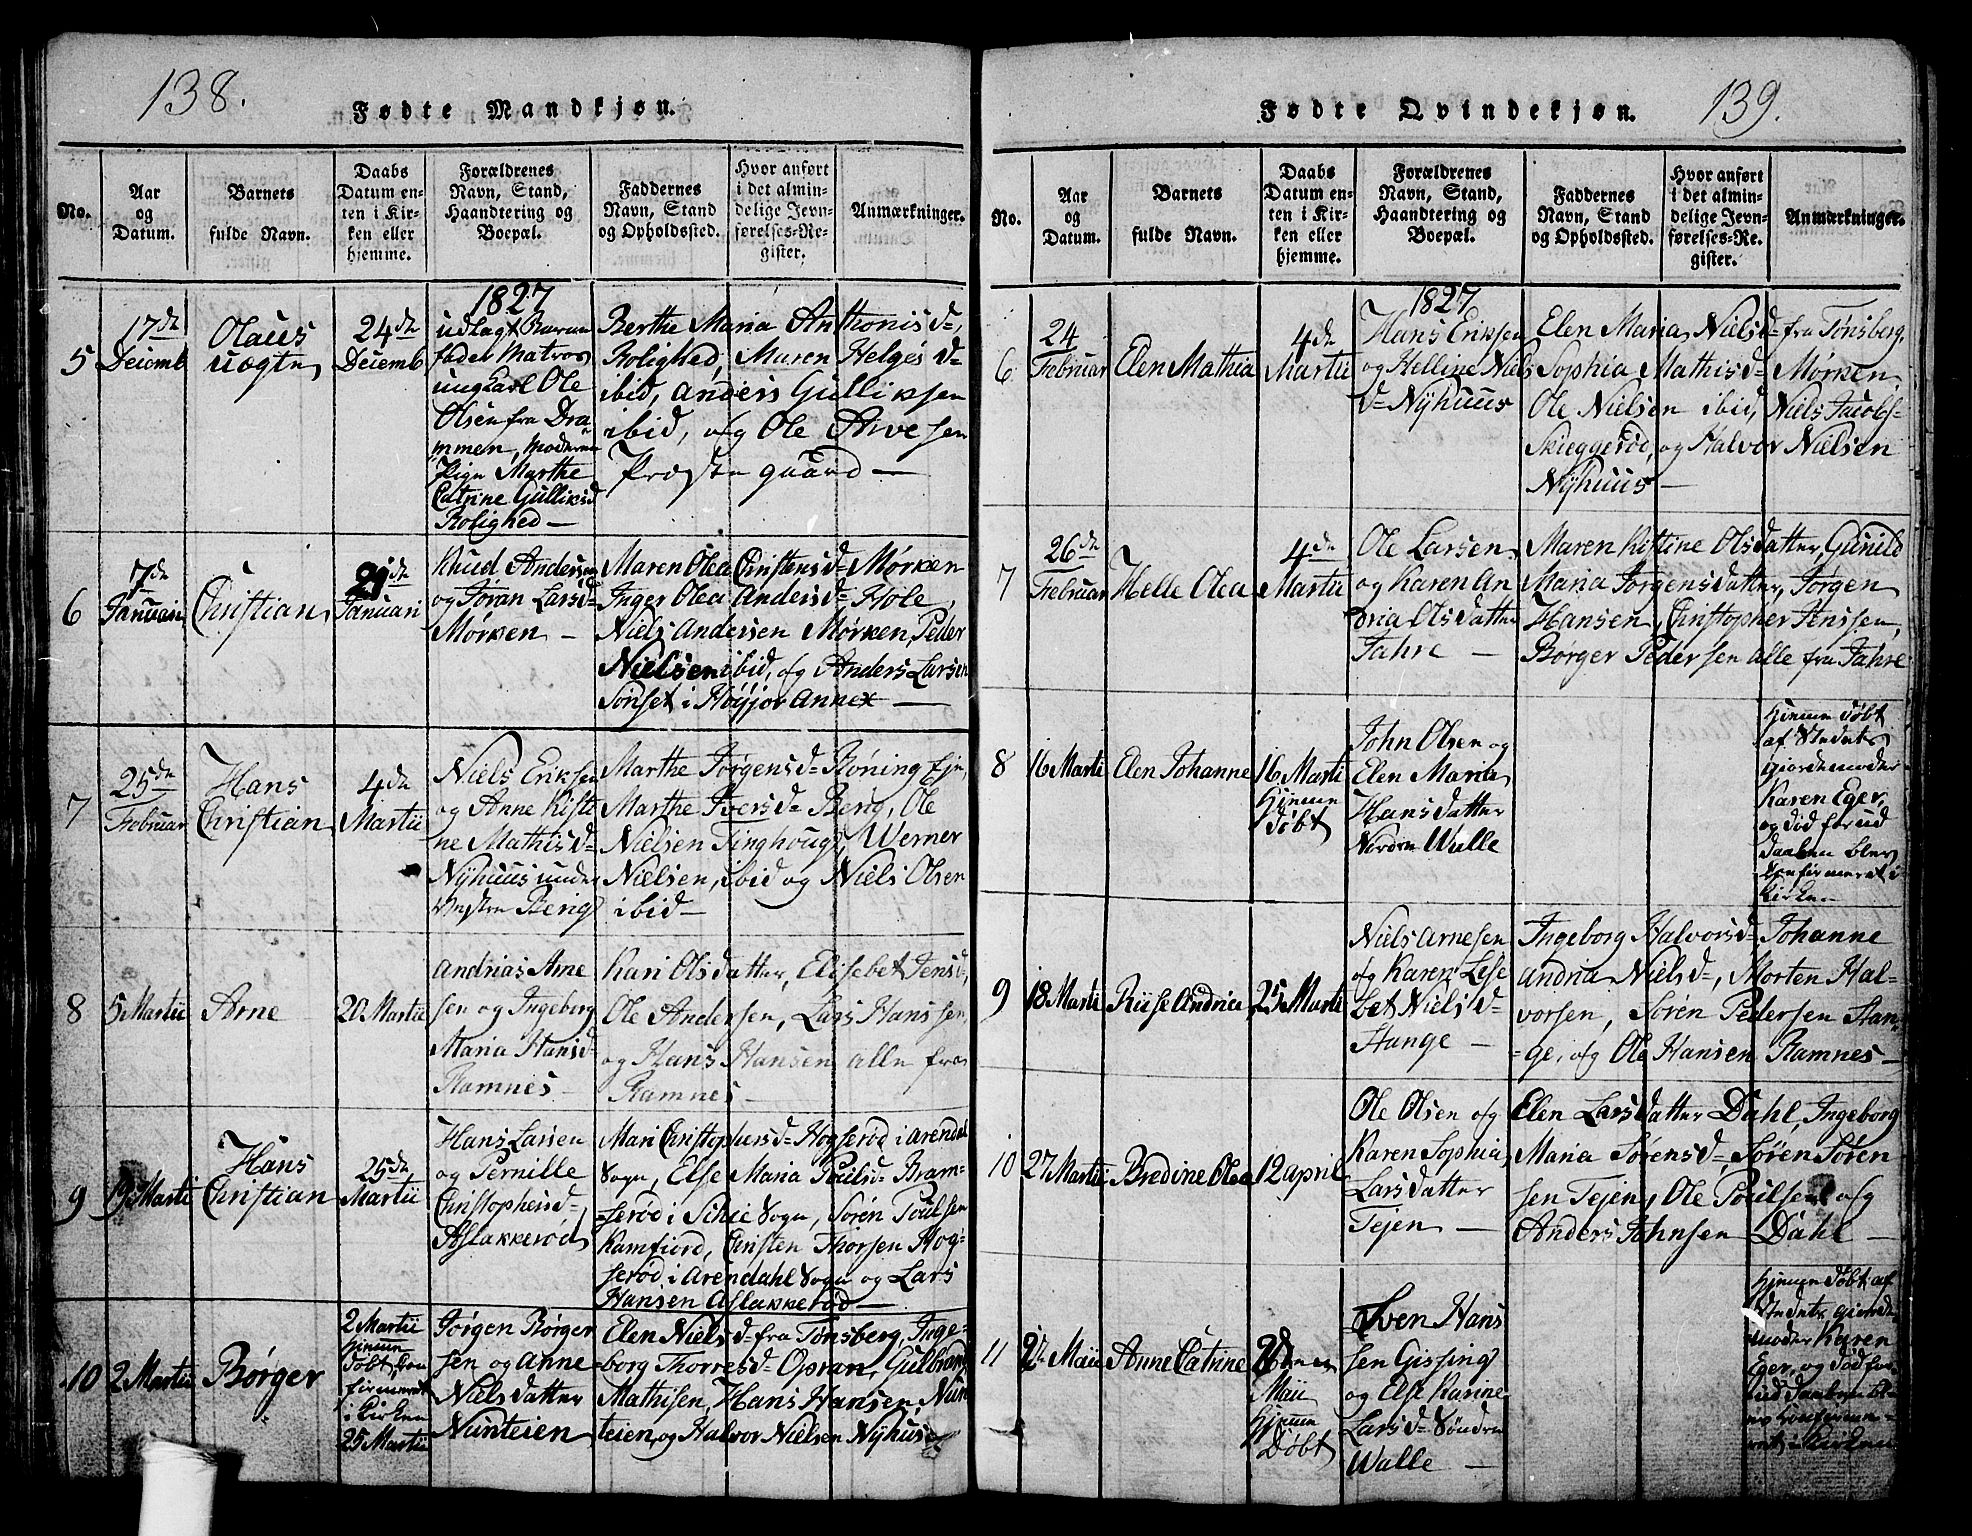 138.
Fødte Mandkjøn.
No.
Aar
og
Datum.
Barnets
fulde Navn.
Daabs
Datum en-
ten i Kir-
ken eller
hjemme.
Forældrenes
Navn, Stand,
Haandtering og
Boepæl.
Faddernes
Navn, Stand
og Opholdssted.
Hvor anført
i det almin-
delige Jevn-
førelses-Re-
gister.
Anmærkninger.
5
17de
Decemb
Olaus
uægte
24de
Decemb
1827
udlagt Barne
fader Matros
ungkarl Ole
Olsen fra Dra
mmen, moderen
Pige Marthe
Catrine Gulliksd
Rolighed —
Berthe Maria Anthonisd=,
Rolighed, Maren Helgesd=
ibid, Anders Gulliksen
ibid, og Ole Arvesen
Præstegaard —
6
7de
Januari
Christian
21de
Januari
Knud Andersen
og Jøran Larsd=
Mørken —
Maren Olea Christensd= Mørken
Inger Olea Andersd= Hole,
Niels Andersen Mørken, Peder
Nielsen ibid, og Anders Larsen
Sønset i Høyjor Annex —
7
25de
Februar
Hans
Christian
4de
Martii
Niels Eriksen
og Anne Kisti
ne Mathisd=
Nyhuus under
Berg
Marthe Jørgensd= Røningen,
Marthe Iversd= Berg, Ole
Nielsen Tinghoug, Werner
Nielsen, ibid og Niels Olsen
ibid —
8
5 Martii
Arne
20 Martii
Andrias Arne
sen og Ingeborg
Maria Hansd=
Ramnes —
Kari Olsdatter, Elisebet Jensd,
Ole Andersen, Lars Hanssen,
og Hans Hansen alle fra
Ramnes —
9
19 Martii
Hans
Christian
25de
Martii
Hans Larsen
og Pernille
Christophersd=,
Aslakkerød
Mari Christophersd= Hogserød i Arendal
Sogn, Else Maria Poulsd= Bram-
serød i Sogn, Søren Poulsen
Kamfiord, Christen Thorsen Hog-
serød i Arendahl Sogn og Lars
Hansen Aslakkerød —
10
2 Martii
Børger
2 Martii
Hiemme
Døbt, Con
firmeret
i Kirken
25 Martii
Jørgen Børger
sen og Anne
Nielsdatter
Nunteien
Elen Nielsd= fra Tønsberg, Inge-
borg Thorresd= Opran, Gulbrand
Mathisen, Hans Hansen, Nun
teien, og Halvor Nielsen Nyhus
139.
Fødte Qvindekjøn.
No.
Aar
og
Datum.
Barnets
fulde Navn.
Daabs
Datum en-
ten i Kir-
ken eller
hjemme.
Forældrenes
Navn, Stand,
Haandtering og
Boepæl.
Faddernes
Navn, Stand
og Opholdssted.
Hvor anført
i det almin-
delige Jevn-
førelses-Re-
gister.
Anmærkninger.
6
24
Februar
Elen Mathia
4de
Martii
1827
Hans Eriksen
og Helline Niels
d= Nyhuus
Elen Maria Nielsd= fra Tønsberg,
Sophia Mathisd= Mørken,
Ole Nielsen ibid, Niels Jacobs-
Skieggerød, og Halvor Nielsen
Nyhuus —
7
26de
Februar
Helle Olea
4de
Martii
Ole Larsen
og Karen An
dria Olsdatter
Fahre —
Maren Kistine Olsdatter, Gunild
Maria Jørgensdatter, Jørgen
Hansen, Christopher Jenssen,
Børger Pedersen alle fra Fahre
8
16 Marti
Elen Johanne
16 Marti
Hiemme
døbt
John Olsen og
Elen Maria
Hansdatter
Nordre Walle
Hiemme døbt
af Stedets
Giordemoder
Karen Eger,
og død forud
Daaben blev
Confirmeret i
Kirken.
9
18 Marti
Riise Andrica
25 Marti
Niels Arnesen
og Karen Lese
bet Nielsd=
Hange —
Ingeborg Halvorsd= Johanne
Andria Nielsd=, Morten Hal-
vorsen, Søren Pedersen Han-
=ge, og Ole Hansen Ramnes —
10
27 Martii
Bredine Olea
12 april
Ole Olsen og
Karen Sophia
Larsdatter
Tejen —
Elen Larsdatter Dahl, Ingeborg
Maria Sørensd= Søren Søren
sen Tejen, Ole Poulsen og
Anders Johnsen Dahl —
11
2de Maii
Anne Catrine
Maii
Hiemme
Døbt
Sven Hans
sen Gissing
og Else Karine
Larsd= Søndre
Walle —
Hiemme Døbt af
Stedets Giorde
moder Karen
Eger, og død for
ud Daaben bl-
ev Confirme-
ret i Kirken